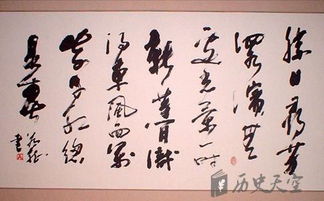 勝日尋芳
泗水濱無
邊光景一時
新等閒識
得東風面萬
紫千紅總
是春
書
历史天空